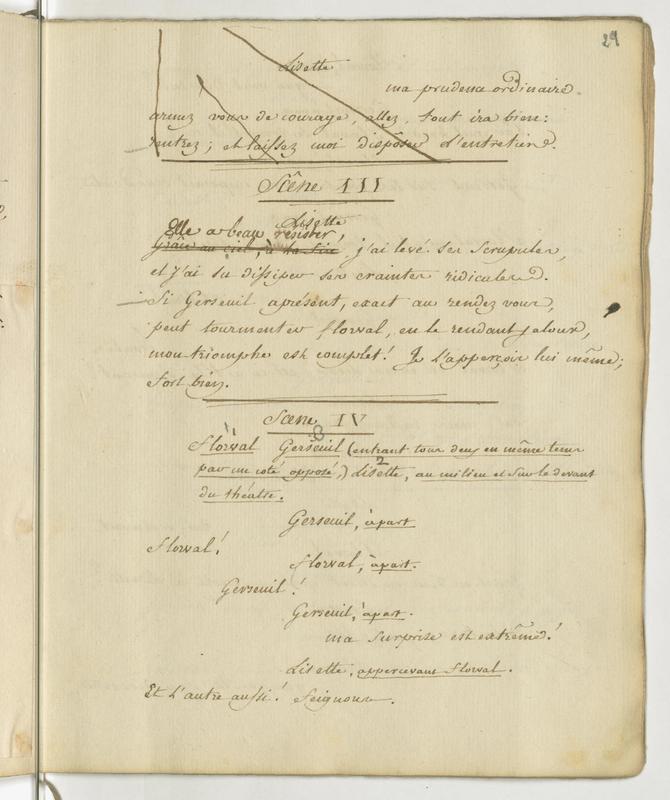 29
Lisette
ma prudence ordinaire.
armez vous de courage, allez, tout ira bien:
rentrez; et laissez moi disposer l'entretien.
Scêne III
Lisette
Elle a beau résister,
grâce au ciel, à la fin j'ai levé ses scrupules,
et j'ai su dissiper ses craintes ridicules.
Si Gerseuil aprésent, exact au rendez vous,
peut tourmenter florval, en le rendant jaloux,
mon triomphe est complet! Je l'apperçois lui même;
fort bien.
Scene IV
1 3
Florval Gerseuil (entrant tous deux en même tems
par un coté opposé,) Lisette, au milieu et sur le devant
2
du théatre.
Gerseuil, àpart
Florval!
florval, àpart.
Gerseuil!
Gerseuil, àpart.
ma surprise est extrême!
Lisette, appercevant florval.
Et L'autre aussi! Seigneur.